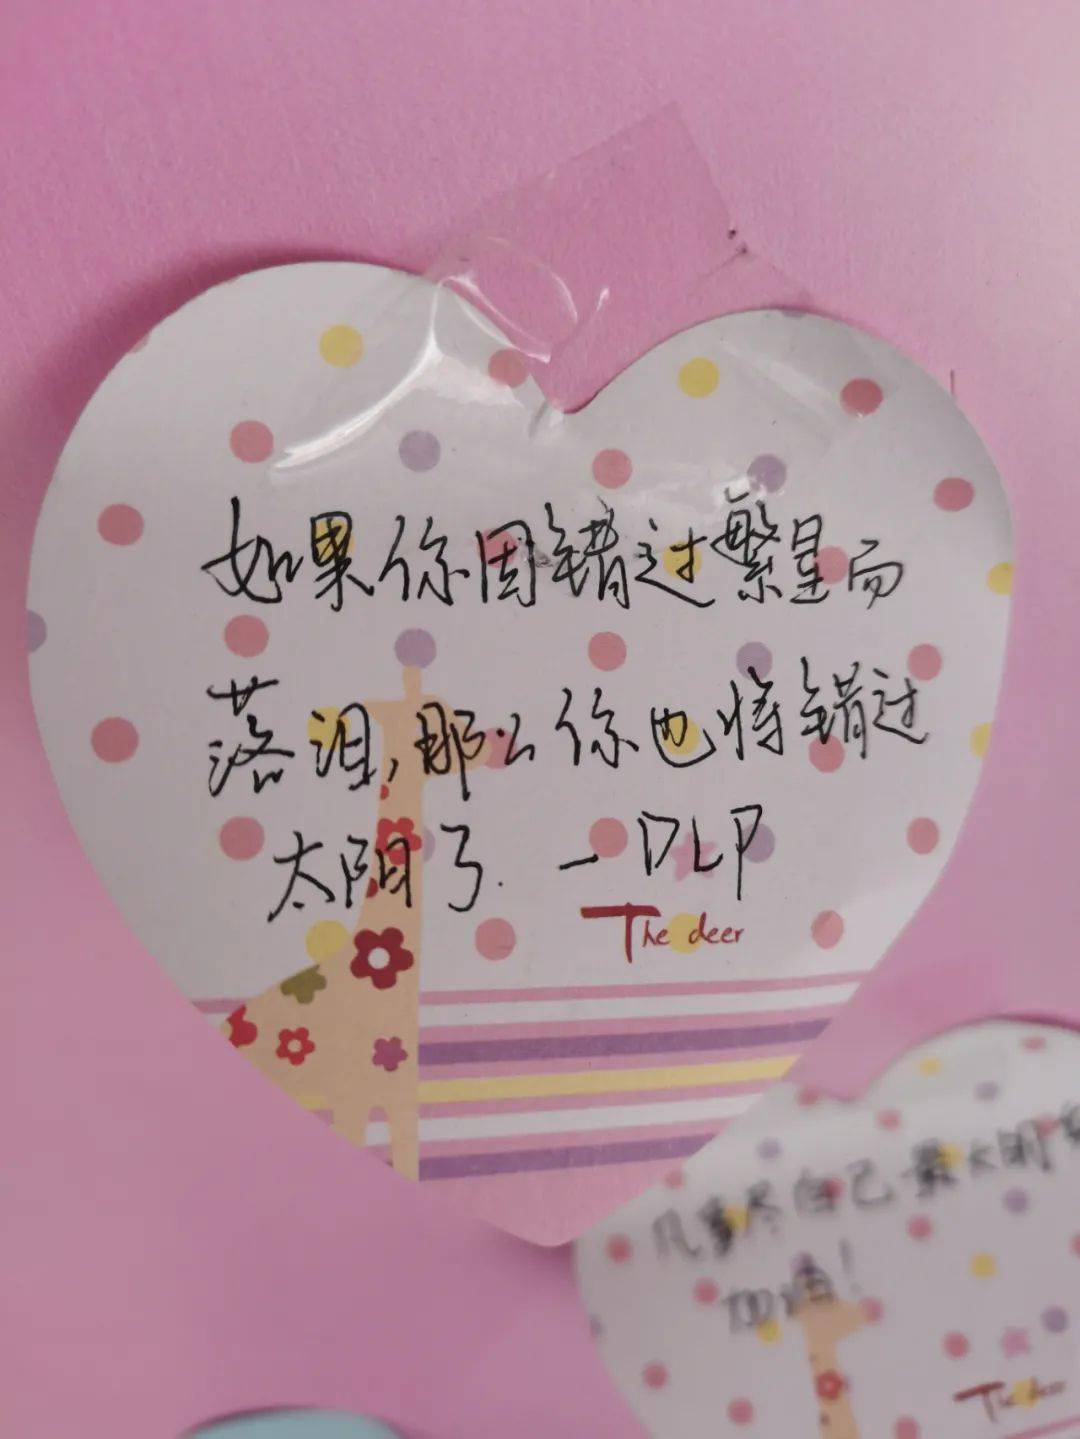 如果你因错过繁星而
落泪,那么你也将错过
太阳了. —DLP
The deer
凡事尽自己最大的
加油!
The deer